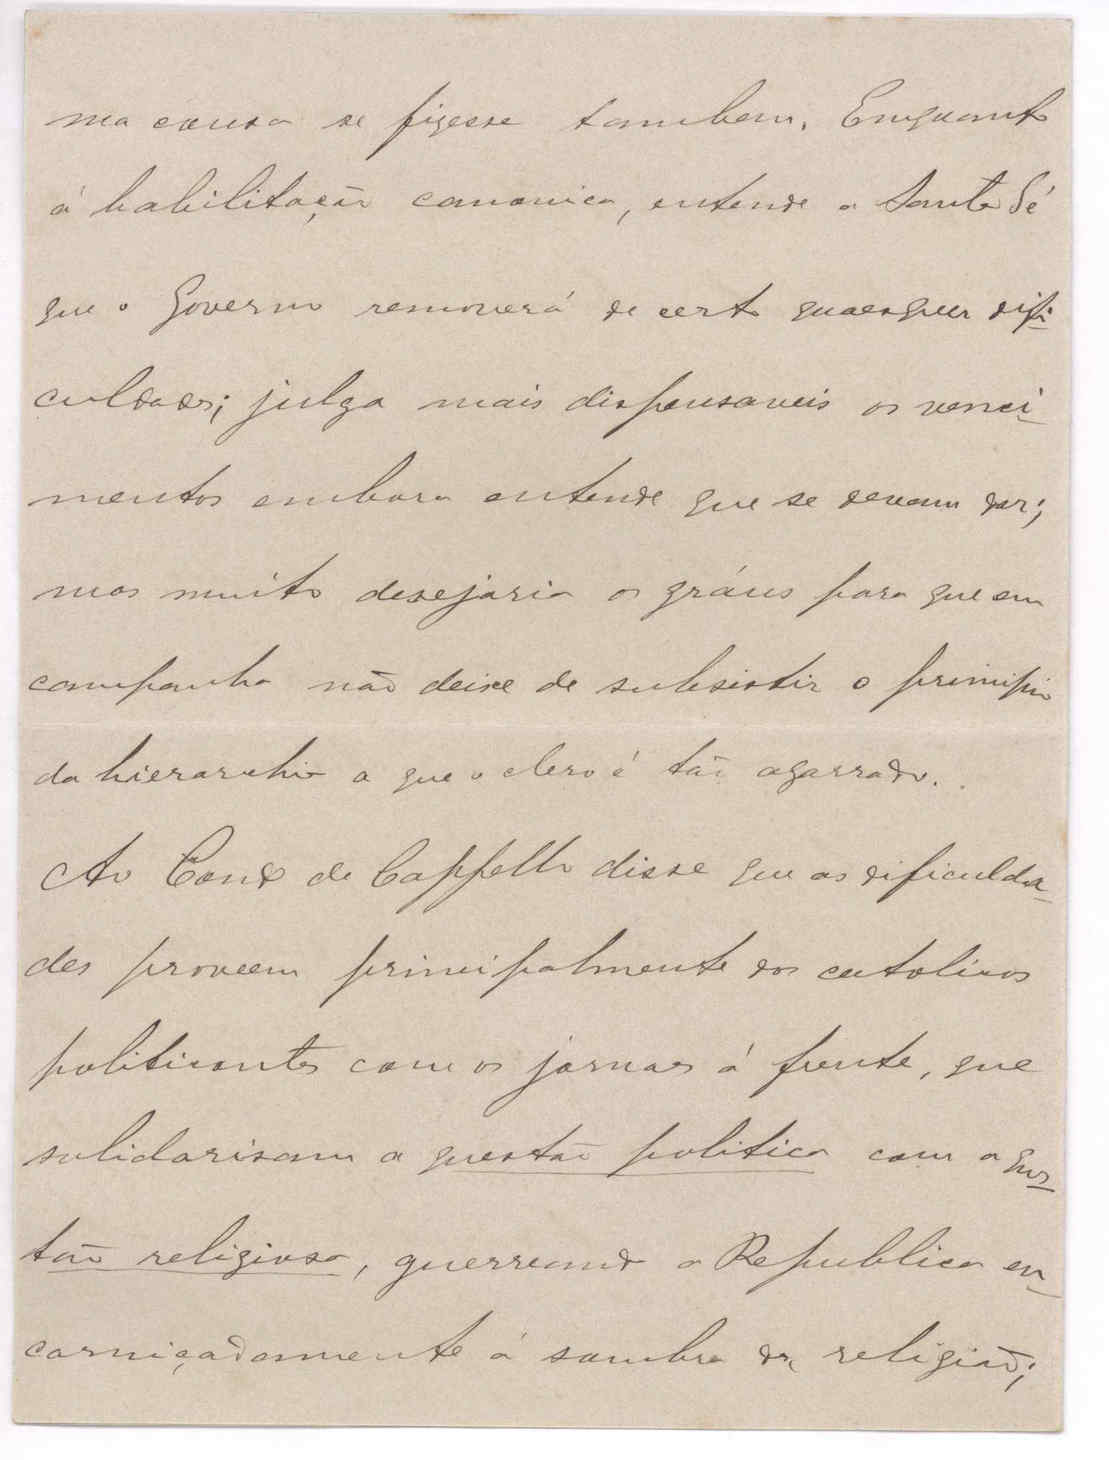 ma cousa se fizesse tambem. Emquanto
á habilitação canonica, entende a Santa Sé
que o Governo removerá de certo quaesquer difi-
culdades; julga mais dispensaveis os venci-
mentos embora entende que se devam dar;
mas muito desejaria os gráus para que em
campanha não deixe de subsistir o principio
da hierarchia a que o clero é tão agarrado.
Ao Conde de Cappello disse que as dificulda-
des proveem principalmente dos catolicos
politicantes com os jornaes á frente, que
solidarisam a questão politica com a ques-
tão religiosa, guerreando a Republica en-
carniçadamente á sombra da religião;